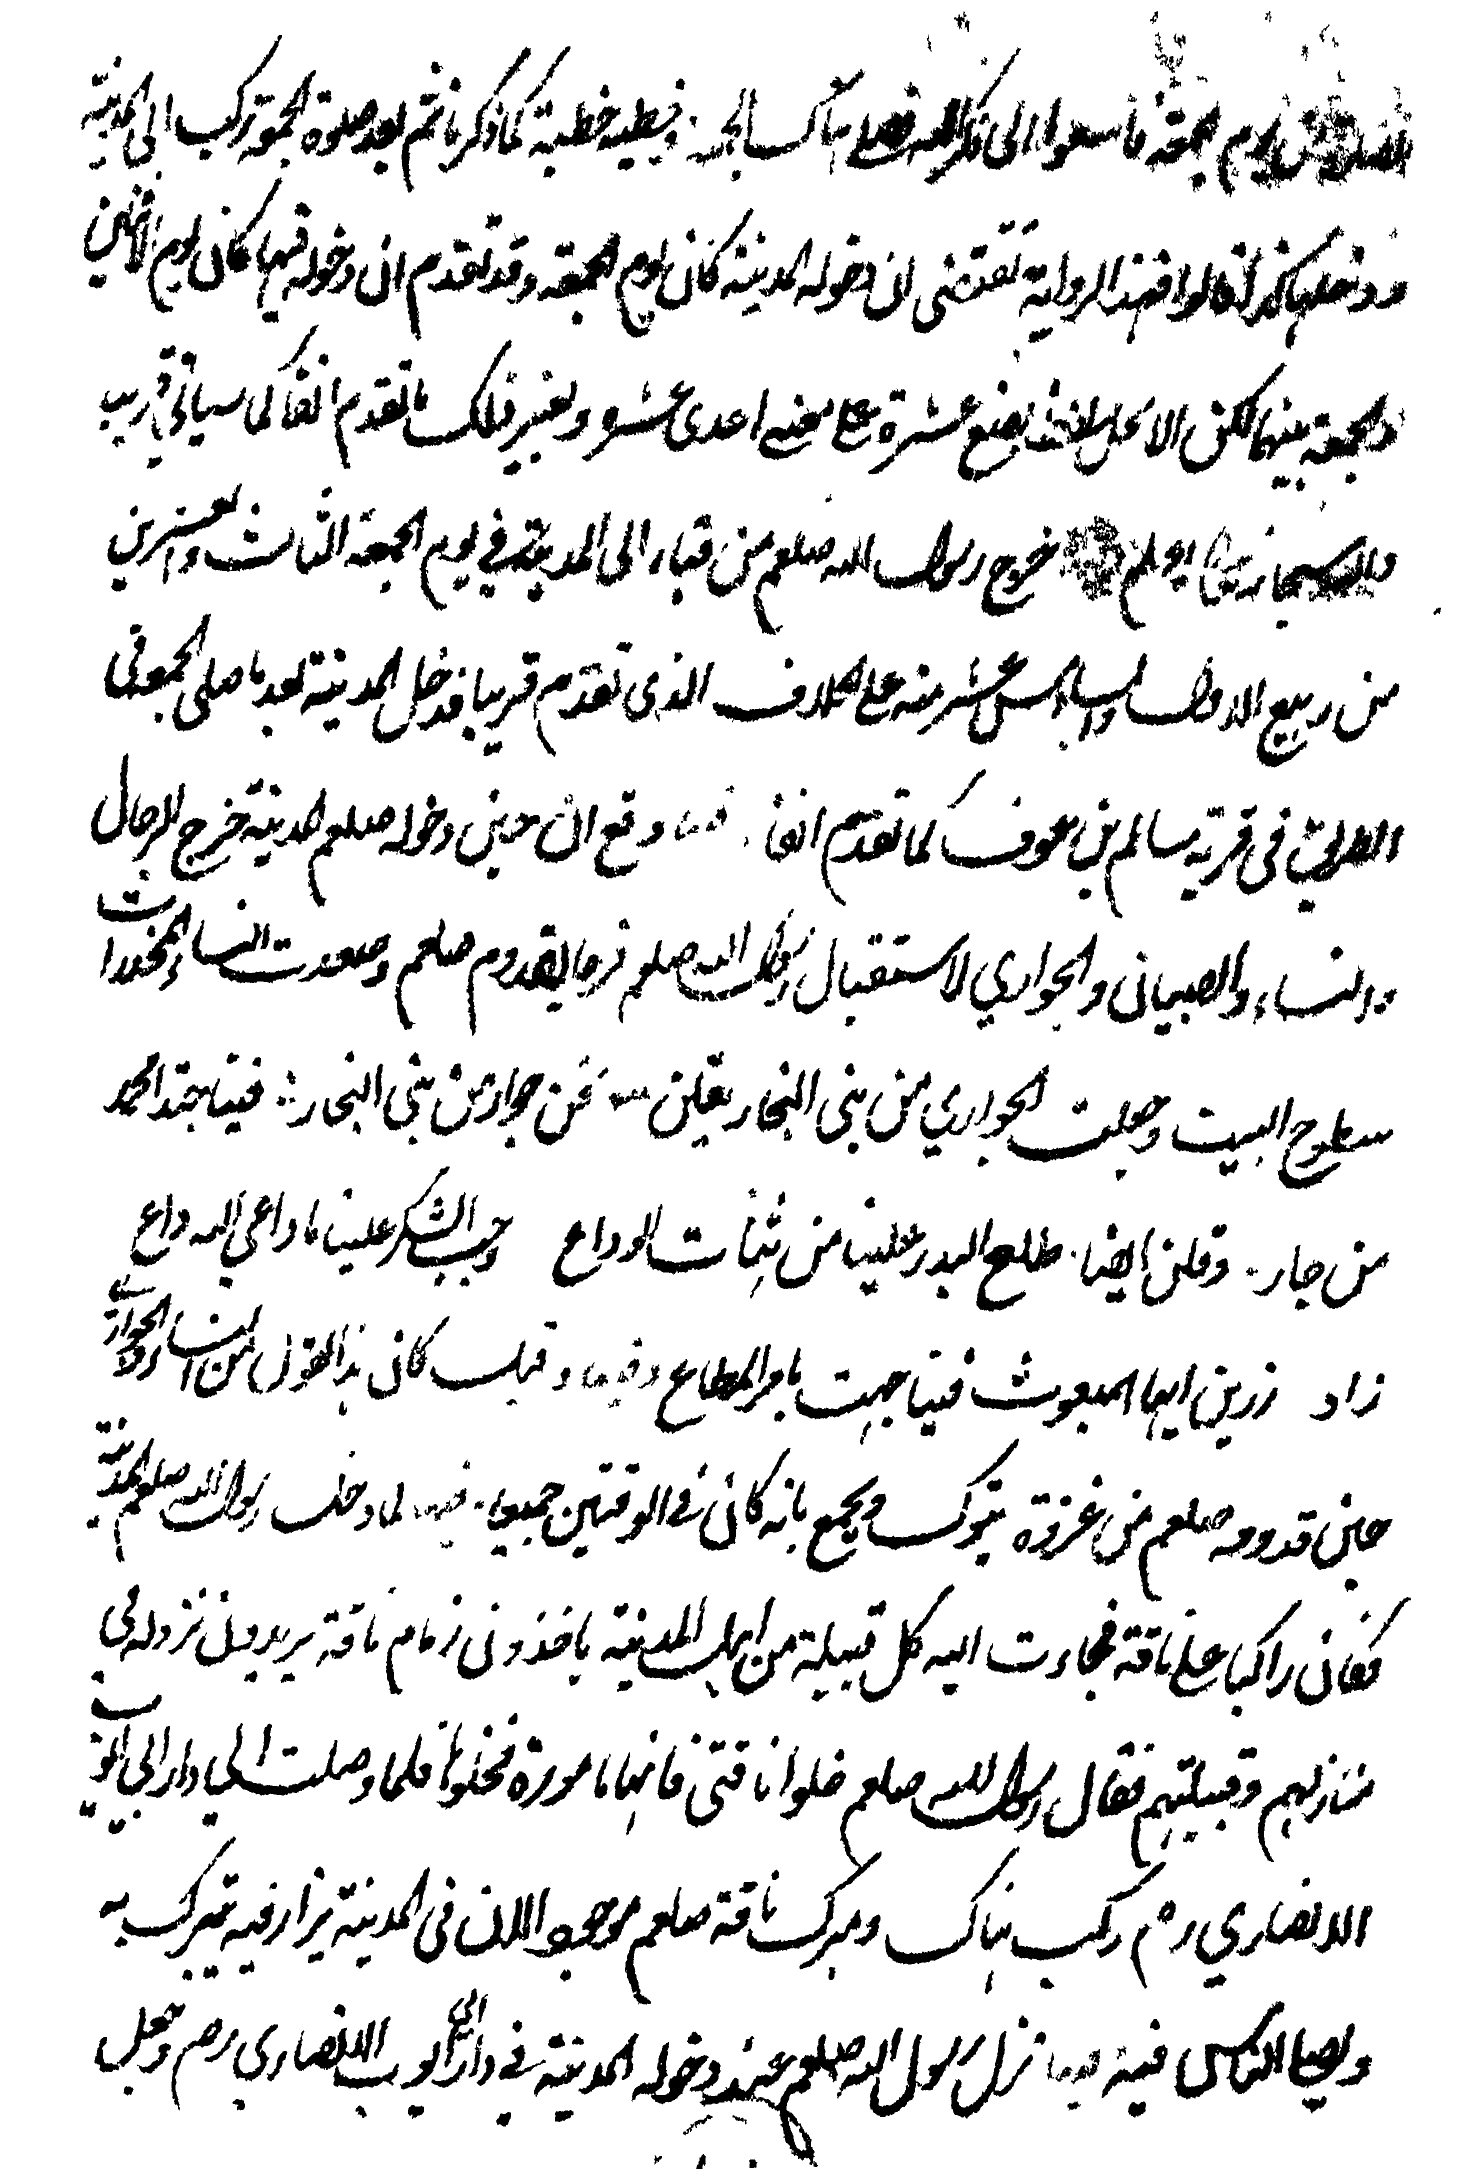 الصلوة من يوم الجمعة فاسعوا الى ذكر الله فصلى هناك الجمعة وخطبه خطبة كما ذكرنا ثم بعد صلوة الجمعة ركب الى المدينة
ودخلها كذا قالوا فهذا الرواية تقتضى ان دخوله المدينة كان يوم الجمعة وقد تقدم ان دخوله فيها كان يوم الاثنين
والجمعة بينهما لكن الا بضع عشرة احدى عشر وبغير ذلك ما تقدم انفا كما سياتي قريب
والله سبحانه اعلم خروج رسول الله صلعم من قباء الى المدينة في يوم الجمعة الثالث والعشرين
من ربيع الاول والسادس عشر منه على الخلاف الذى تقدم قريبا فدخل المدينة بعد ما صلى الجمعة في
الطريق فى قرية سالم بن عوف كما تقدم انفا وقع ان حين دخوله صلعم المدينة خرج الرجال
والنساء والصبيان والجواري لاستقبال رسول الله صلعم فرحا لقدوم صلعم وصعدت النساء المخدرات
سطوح البيت وجعلت الجواري من بنى النجار يقلن نحن جوار من بنى النجار فيا حبذا محمد
من جار وقلن ايضا طلع البدر علينا من ثنيات الوداع وجب الشكر علينا ما داعي لله داع
زاد زرين ايها المبعوث فينا جئت بامر المطاع وقيل كان هذا القول من النساء والجواري
حين قدومه صلعم من غزوة تبوك ويجمع بانه كان في الوقتين جميعا لما دخل رسول الله صلعم المدينة
فكان راكبا على ناقة فجاءت اليه كل قبيلة من اهل المدينة ياخذون زمام ناقة يريدون نزوله في
منازلهم وقبيلتهم فقال رسول الله صلعم خلوا ناقتى فانها مامورة فخلوها فلما وصلت الي دار ابي ايوب
الانصاري رضـ ركب هناك ومبرك ناقة صلعم موجود الان فى المدينة يزار فيه تبرك به
الناس فيه نزل رسول الله صلعم عند دخوله المدينة في دار ابى ايوب الانصاري رضـ وجعل